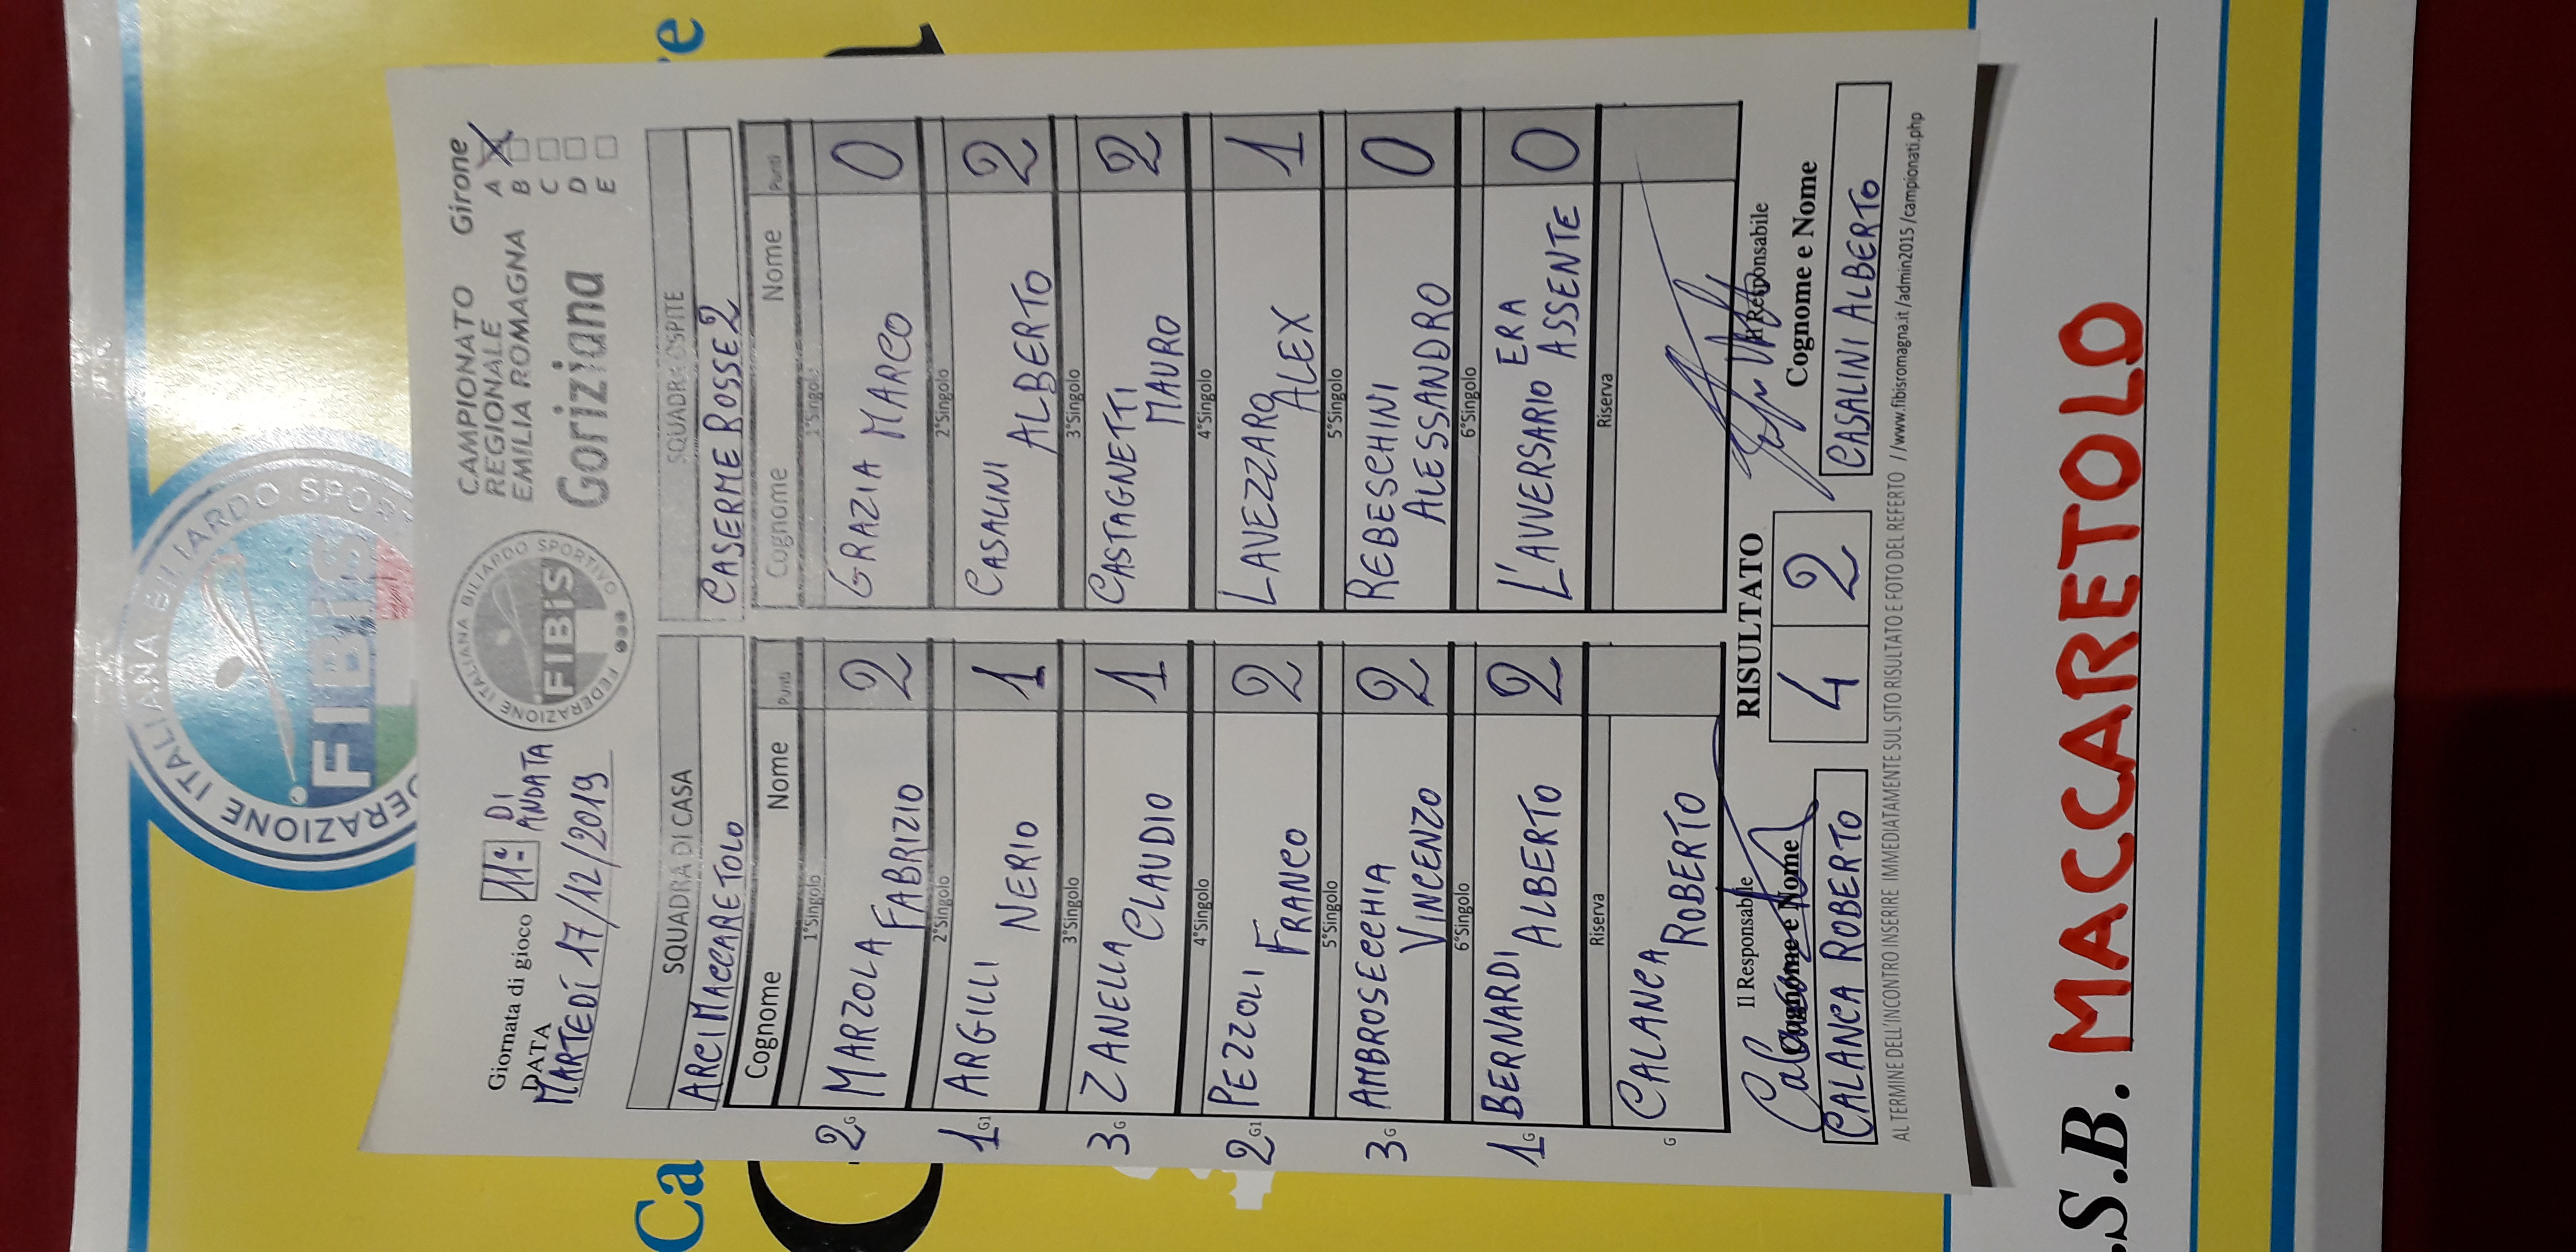 FEDERAZIONE ITALIANA BILIARDO SPORT
FIBiS
Giornata di gioco 11ª DI ANDATA
DATA
MARTEDÍ 17/12/2019
FEDERAZIONE ITALIANA BILIARDO SPORTIVO
FIBiS
CAMPIONATO
REGIONALE
EMILIA ROMAGNA
Goriziana
Girone
A
B
C
D
E
SQUADRA DI CASA
ARCI MACCARETOLO
Cognome Nome Punti
1°Singolo
2 G MARZOLA FABRIZIO 2
2°Singolo
1 G1 ARGILLI NERIO 1
3°Singolo
3 G ZANELLA CLAUDIO 1
4°Singolo
2 G1 PEZZOLI FRANCO 2
5°Singolo
3 G AMBROSECCHIA VINCENZO 2
6°Singolo
1 G BERNARDI ALBERTO 2
Riserva
G CALANCA ROBERTO
SQUADRA OSPITE
CASERME ROSSE 2
Cognome Nome Punti
1°Singolo
GRAZIA MARCO 0
2°Singolo
CASALINI ALBERTO 2
3°Singolo
CASTAGNETTI MAURO 2
4°Singolo
LAVEZZARO ALEX 1
5°Singolo
REBESCHINI ALESSANDRO 0
6°Singolo
L'AVVERSARIO ERA ASSENTE 0
Riserva
Il Responsabile
Cognome e Nome
CALANCA ROBERTO
RISULTATO
4 2
Il Responsabile
Cognome e Nome
CASALINI ALBERTO
AL TERMINE DELL'INCONTRO INSERIRE IMMEDIATAMENTE SUL SITO RISULTATO E FOTO DEL REFERTO //www.fibisromagna.it /admin2015 /campionati.php
.S.B. MACCARETOLO